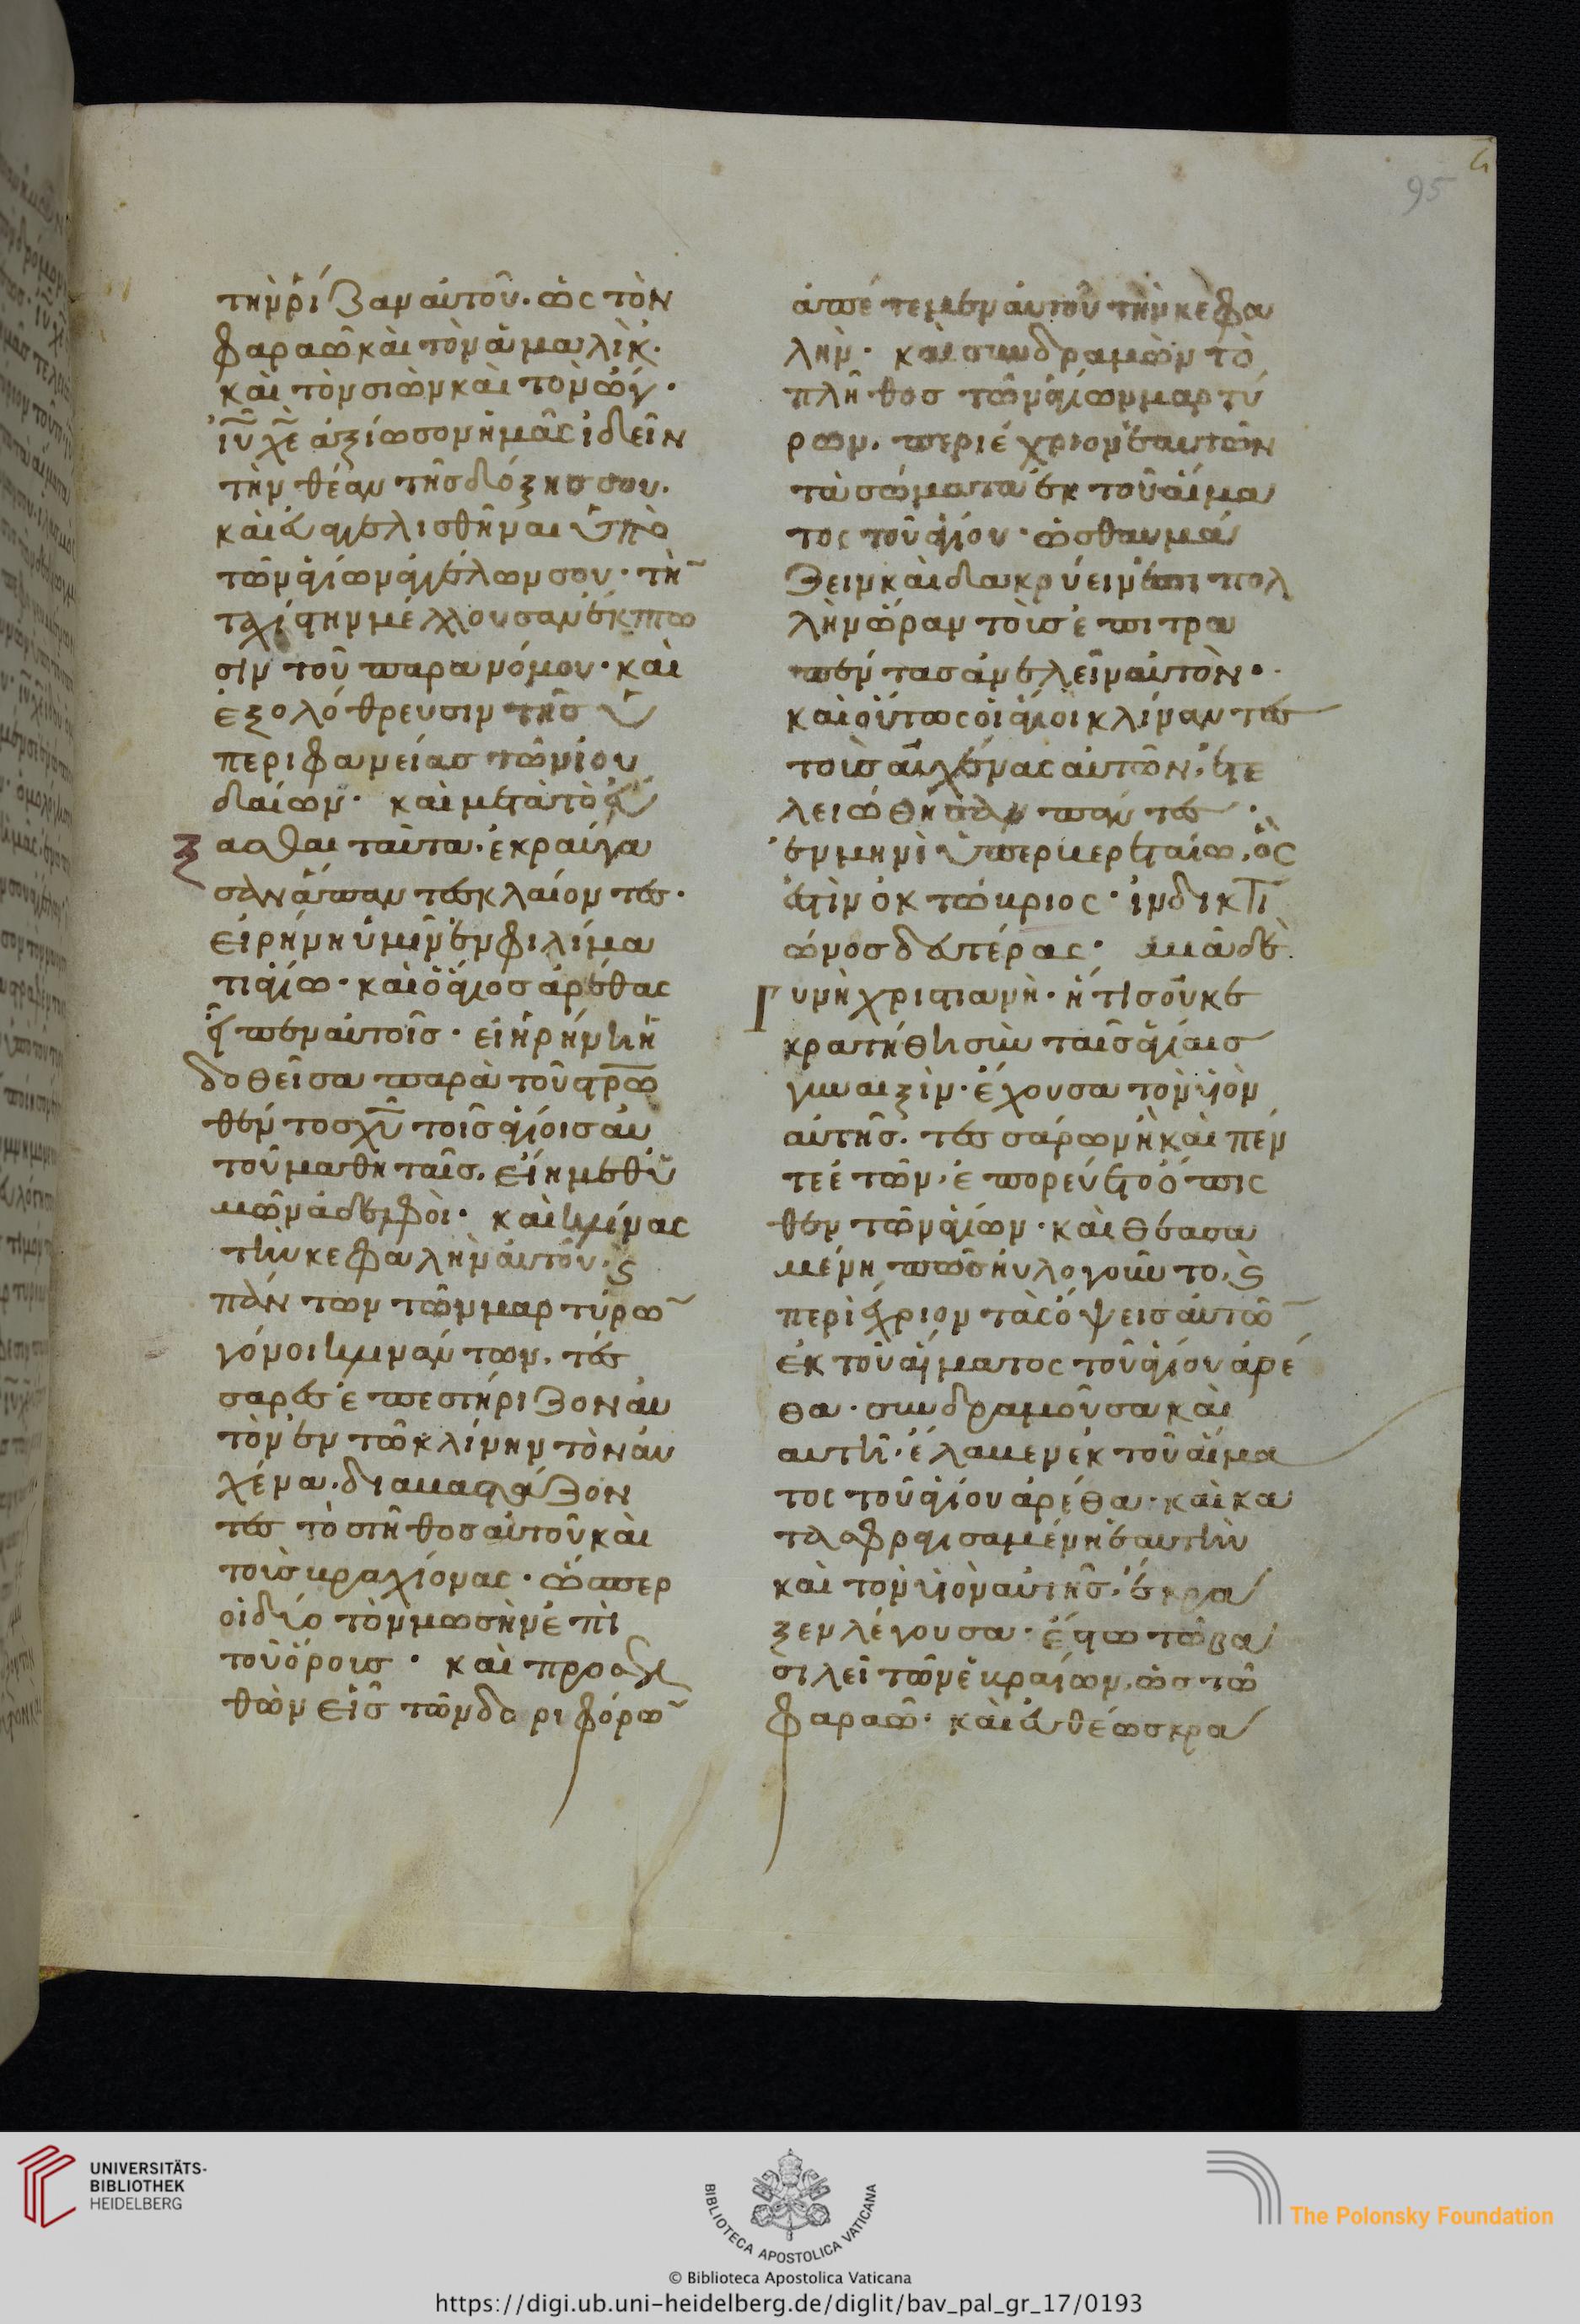 95
τὴν ῥίζαν αὐτοῦ. ὡς τὸν
φαραὼ καὶ τὸν ἀμαλὶκ.
καὶ τὸν σιὼν καὶ τὸν ὤγ.
ἰῦ χὲ ἀξίωσον ἡμᾶς ἰδεῖν
τὴν θέαν τῆς δόξης σου.
καὶ ἀγελισθῆναι ὑπὸ
τῶν ἁγίων ἀγγέλων σου. τὴ
ταχίστην μέλλουσαν ἔκπτω
σιν τοῦ παρανόμου. καὶ
ἐξολόθρευσιν τῆς ὑ
περιφανείας τῶν ἰου
δαίων. καὶ μετὰ τὸ εὔ
ξασθαι ταῦτα. ἐκραύγα
σαν ἅπαντες κλαίοντες.
εἰρήνη ὑμῖν ἐν φιλήμα
τι ἁγίω. καὶ ὁ ἅγιος ἀρέθας
εἶπεν αὐτοῖς. εἰ ἠρήνη ἡ
δοθεῖσα παρὰ τοῦ στρω
θέντος χῦ τοῖς ἁγίοις αὐ
τοῦ μαθηταῖς. εἴη μεθ' ὑ
μῶν ἀδελφοί. καὶ κλίνας
τὴν κεφαλὴν αὐτοῦ. ἐ
πὰν τῶν τῶν μαρτύρω
γόνοι κλινάντων. τέσ
σαρες ἐπεστήριζον αὐ
τὸν ἐν τῶ κλίνην τὸν αὐ
χένα. διαβαστάζον
τες τὸ στῆθος αὐτοῦ καὶ
τοὺς βραχίονας. ὥσπερ
οἱ δύο τὸν μωσὴν ἐπὶ
τοῦ ὄρους. καὶ προσελ
θὼν εἷς τῶν δορυφόρω
ἀπέτεμεν αὐτοῦ τὴν κεφα
λὴν. καὶ συνδραμὼν τὸ
πλῆθος τῶν ἁγίων μαρτύ
ρων. περιέχριον ἑαυτῶν
τὰ σώματα ἐκ τοῦ αἵμα
τος τοῦ ἁγίου. ὡς θαυμά
ζειν καὶ δακρύειν ἐπὶ πολ
λὴν ὥραν τοὺς ἐπιτρα
πέντας ἀνελεῖν αὐτὸν.
καὶ οὕτως οἱ ἅγιοι κλίναντες
τοὺς αὐχένας αὐτῶν, ἐτε
λειώθησαν πάντες.
ἐν μηνὶ ὑπερβερεταίω, ὅς
ἐστὶν ὀκτώβριος. ἰνδικτι
ῶνος δευτέρας. μιᾶ δὲ
Γυνὴ χριστιανὴ. ἥτις οὐκ ἐ
κρατήθη σὺν ταῖς ἁγίαις
γυναιξὶν. ἔχουσα τὸν υἱὸν
αὐτῆς. τεσσάρων ἢ καὶ πέν
τε ἐτῶν. ἐπορεύετο ὄπισ
θεν τῶν ἁγίων. καὶ θεασα
μένη πῶς ηὐλογοῦντο. ἐ
περιέχριον τὰς ὄψεις αὐτῶ
ἐκ τοῦ αἵματος τοῦ ἁγίου ἀρέ
θα. συνδραμοῦσα καὶ
αὐτὴ. ἔλαβεν ἐκ τοῦ αἵμα
τος τοῦ ἁγίου ἀρέθα. καὶ κα
τασφραγισαμένη ἑαυτὴν
καὶ τὸν υἱὸν αὐτῆς. ἔκρα
ξεν λέγουσα. ἔστω τῶ βα
σιλεῖ τῶν ἑβραίων. ὡς τῶ
φαραῶ. καὶ εὐθέως κρα
UNIVERSITÄTS-
BIBLIOTHEK
HEIDELBERG
BIBLIOTECA APOSTOLICA VATICANA
The Polonsky Foundation
© Biblioteca Apostolica Vaticana
https://digi.ub.uni-heidelberg.de/diglit/bav_pal_gr_17/0193